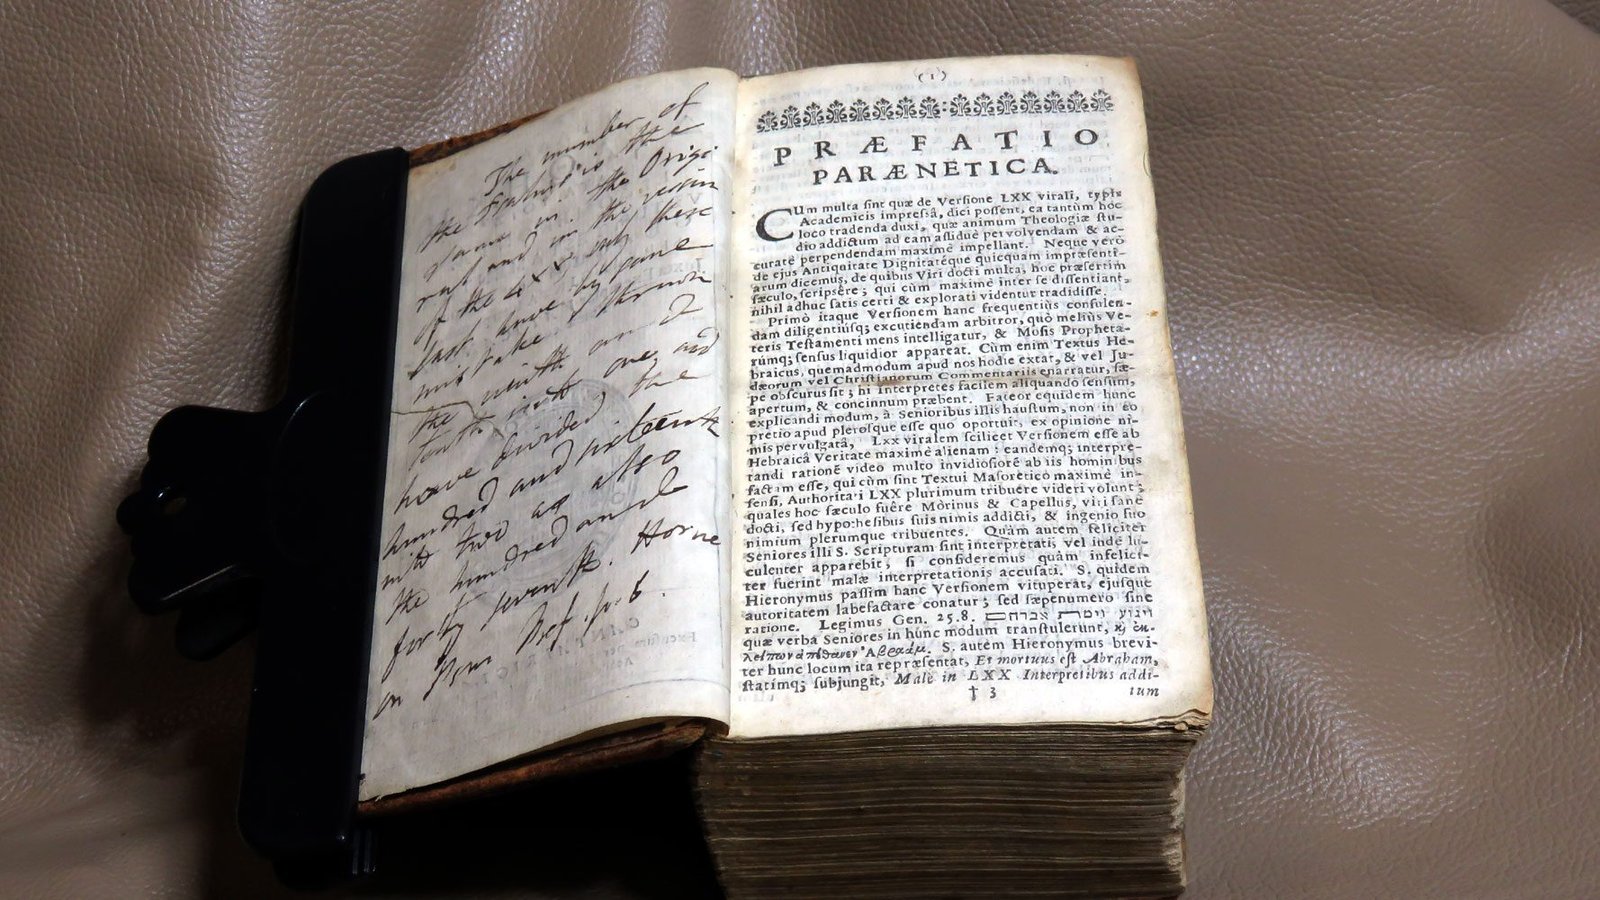 The number of
the Psalms is the
same in the Origi-
nal and in the version
of the LXX only these
last have by some
mistake thrown
the ninth and
tenth into one, and
have divided the
hundred and sixteenth
into two as also
the hundred and
forty seventh. Horne
on Psms Pref. p. 6.
(1)
PRÆFATIO
PARÆNETICA.
CUm multa sint quæ de Versione LXX virali, typis
Academicis impressâ, dici possent, ea tantùm hoc
loco tradenda duxi, quæ animum Theologiæ stu-
dio addictum ad eam assiduè pervolvendam & ac-
curatè perpendendam maximè impellant. Neque verò
de ejus Antiquitate Dignitatéque quicquam impræsenti-
arum dicemus, de quibus Viri docti multa, hoc præsertim
sæculo, scripsêre; qui cùm maximè inter se dissentiant,
nihil adhuc satis certi & explorati videntur tradidisse.
Primò itaque Versionem hanc frequentiùs consulen-
dam diligentiúsq; excutiendam arbitror, quò meliùs Ve-
teris Testamenti mens intelligatur, & Mosis Propheta-
rúmq; sensus liquidior appareat. Cùm enim Textus He-
braicus, quemadmodum apud nos hodie extat, & vel Ju-
dæorum vel Christianorum Commentariis enarratur, sæ-
pe obscurus sit; hi Interpretes facilem aliquando sensum,
apertum, & concinnum præbent. Fateor equidem hunc
explicandi modum, à Senioribus illis haustum, non in eo
pretio apud plerosque esse quo oportuit, ex opinione ni-
mis pervulgatâ, Lxx viralem scilicet Versionem esse ab
Hebraicâ Veritate maximè alienam: eandemq; interpre-
tandi rationê video multo invidiosiorê ab iis hominibus
factam esse, qui cùm sint Textui Masoretico maximè in-
fensi, Authoritati LXX plurimum tribuere videri volunt;
quales hoc sæculo fuêre Morinus & Capellus, viri sanè
docti, sed hypothesibus suis nimis addicti, & ingenio suo
nimium plerumque tribuentes. Quàm autem feliciter
Seniores illi S. Scripturam sint interpretati, vel inde lu-
culenter apparebit, si consideremus quàm infelici-
ter fuerint malæ interpretationis accusati. S. quidem
Hieronymus passim hanc Versionem vituperat, ejusque
autoritatem labefactare conatur; sed sæpenumero sine
ratione. Legimus Gen. 25.8. ויגוע וימת אברהם
quæ verba Seniores in hunc modum transtulerunt, ϗ ἐκ-
λείπων ἀπέθανεν Ἀβραάμ. S. autem Hieronymus brevi-
ter hunc locum ita repræsentat, Et mortuus est Abraham,
statimq; subjungit, Male in LXX Interpretibus addi-
† 3 tum